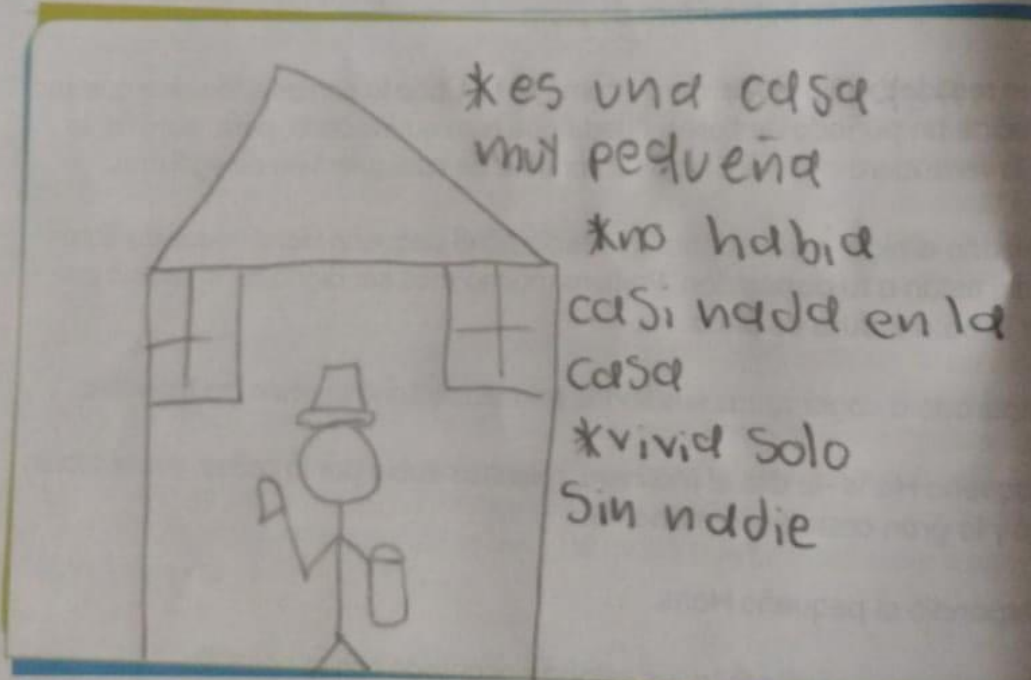 *es una casa
muy pequeña
*no habia
casi nada en la
casa
*vivia solo
Sin nadie